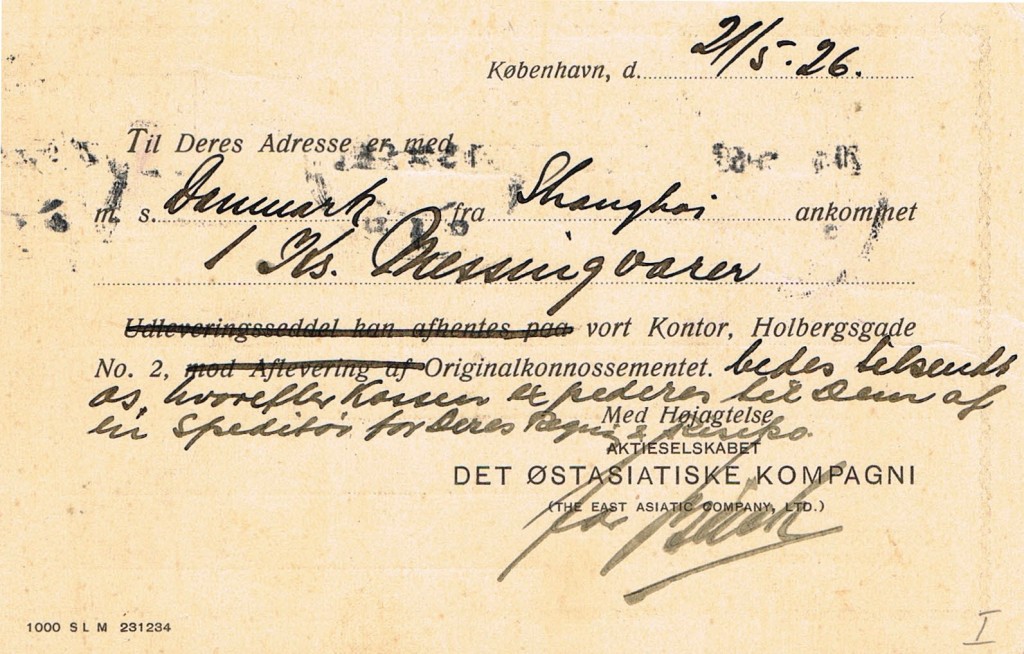 København, d. 21/5-26.
Til Deres Adresse er med
m. s. Danmark fra Shanghai ankommet
1 Ks. Messingvarer
Udleveringsseddel kan afhentes paa vort Kontor, Holbergsgade
No. 2, mod Aflevering af Originalkonnossementet. bedes tilsendt
os, hvorefter Kassen expederes til Dem af
en Speditør for Deres Regning & Risiko.
Med Højagtelse
AKTIESELSKABET
DET ØSTASIATISKE KOMPAGNI
(THE EAST ASIATIC COMPANY, LTD.)
1000 S L M 231234
I